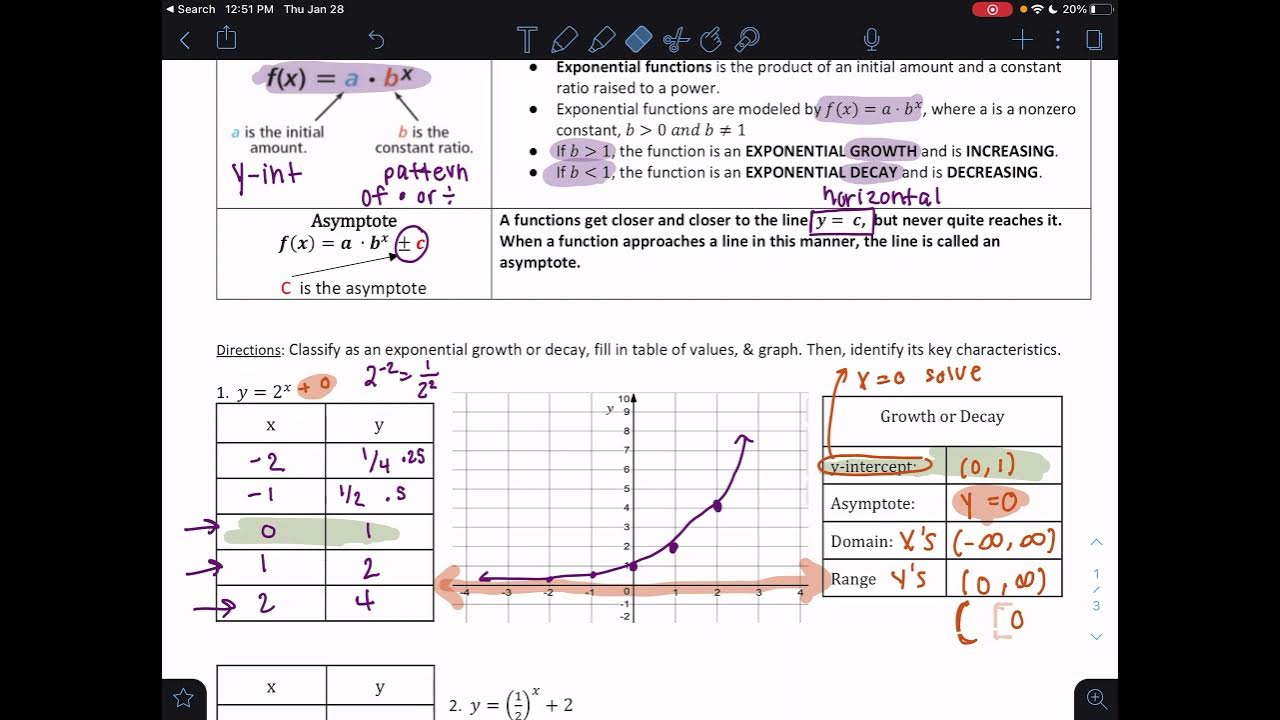 Search 12:51 PM Thu Jan 28
20%
f(x) = a · bˣ
a is the initial amount.
b is the constant ratio.
y-int
pattern
of • or ÷
• Exponential functions is the product of an initial amount and a constant
ratio raised to a power.
• Exponential functions are modeled by f(x) = a · bˣ, where a is a nonzero
constant, b > 0 and b ≠ 1
• If b > 1, the function is an EXPONENTIAL GROWTH and is INCREASING.
• If b < 1, the function is an EXPONENTIAL DECAY and is DECREASING.
horizontal
Asymptote
f(x) = a · bˣ ± c
C is the asymptote
A functions get closer and closer to the line y = c, but never quite reaches it.
When a function approaches a line in this manner, the line is called an
asymptote.
Directions: Classify as an exponential growth or decay, fill in table of values, & graph. Then, identify its key characteristics.
x=0 solve
1. y = 2ˣ + 0
2⁻² = 1/2²
x y
-2 1/4 .25
-1 1/2 .5
0 1
1 2
2 4
y
10
9
8
7
6
5
4
3
2
1
-4 -3 -2 -1 0 1 2 3 4
-1
-2
Growth or Decay
y-intercept: (0,1)
Asymptote: y = 0
Domain: X's (-∞, ∞)
Range Y's (0, ∞)
( [ 0
1
/
3
x y
2. y = (1/2)ˣ + 2